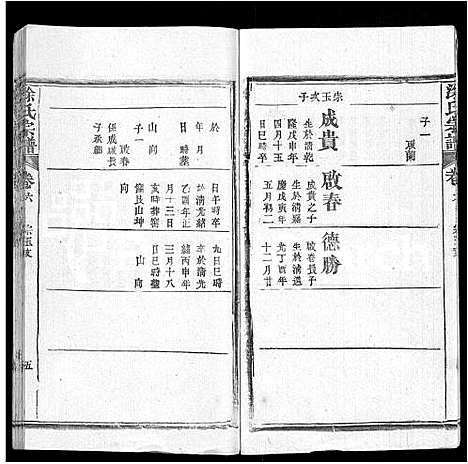 涂氏宗譜
卷六
子一
啟蘭
崇玉次子
成貴
生於清乾
隆戊申年
四月十五
日巳時卒
啟春
成貴之子
生於清嘉
慶戊寅年
五月初二
德勝
啟春長子
生於清道
光丁酉年
十二月廿
於
年 月
日 時葬
山 向
子一 啟春
係成咸長
子承繼
日午時卒
於清光緒
乙酉年十
月十三日
時葬窑
技山坤
向
九日巳時
卒於清光
緒丙申年
三月十八
日巳時葬
山 向
涂氏宗譜
卷六
崇玉
五